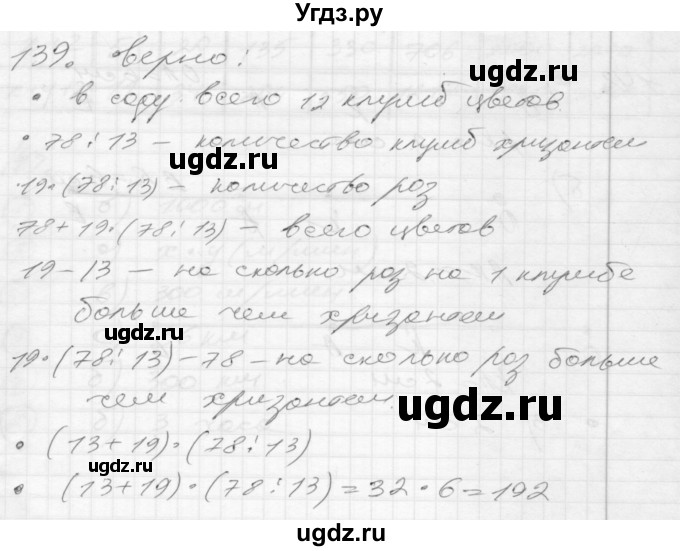 Угдз.ру
139. верно:
• в саду всего 12 клумб цветов.
• 78 : 13 – количество клумб хризантем
19·(78:13) – количество роз
78+19·(78:13) – всего цветов
19–13 – на сколько роз на 1 клумбе
больше чем хризантем
19·(78:13)–78 – на сколько роз больше
чем хризантем.
• (13+19)·(78:13)
• (13+19)·(78:13)=32·6=192
ugdz.ru
ugdz.ru
ugdz.ru
ugdz.ru
ugdz.ru